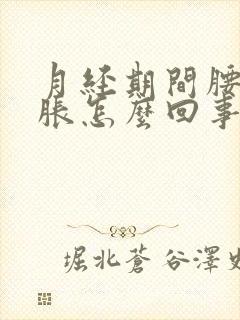 月经期間腰
脹怎麽回事
堀北蒼谷澤